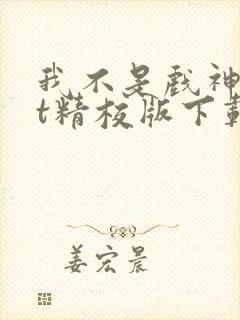 我不是戏神
t精校版下载
姜宏晨